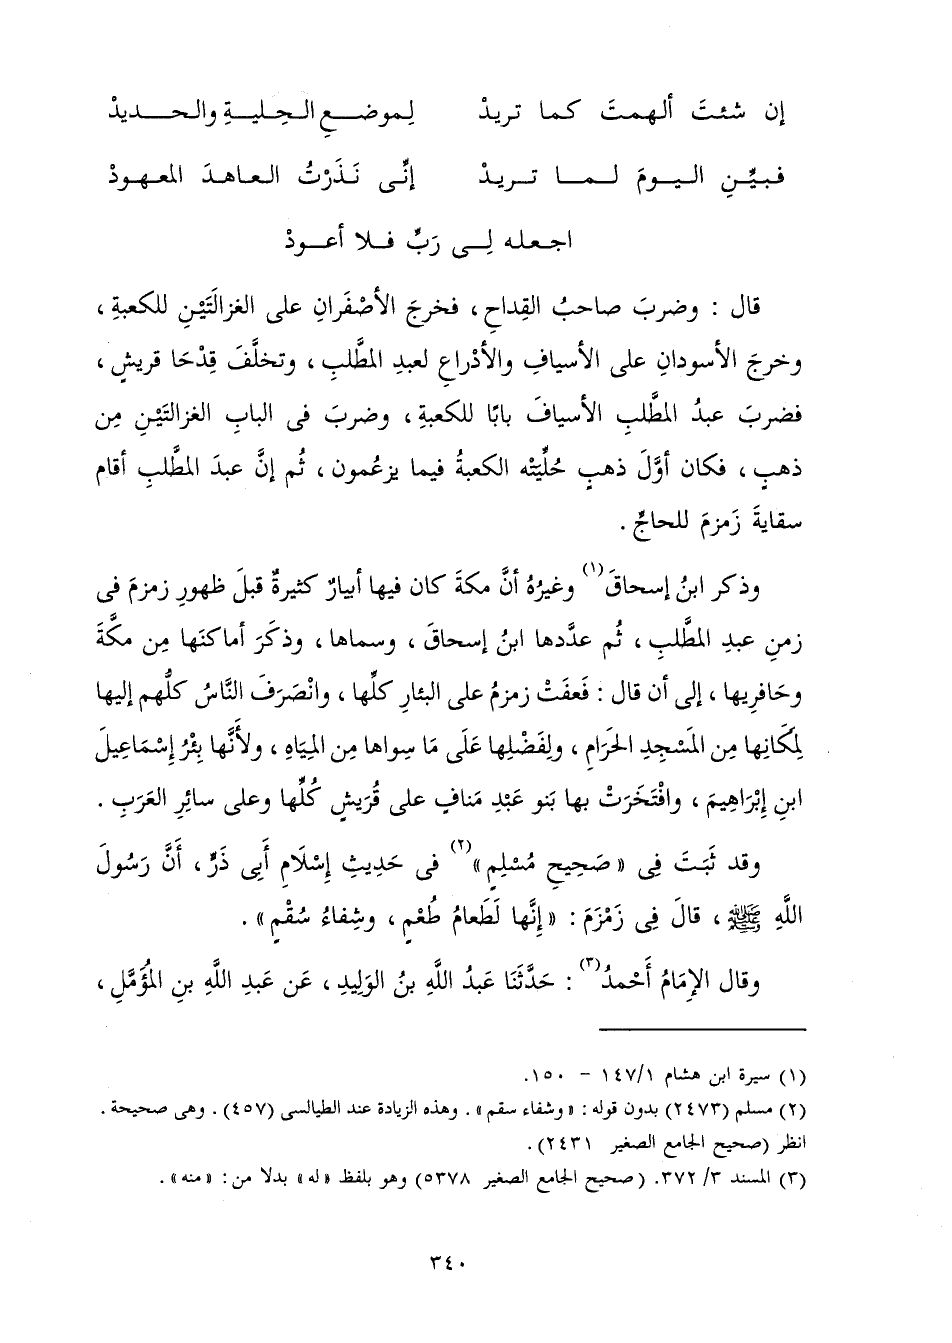 إن شئتَ ألهمتَ كما تريدْ لِموضعِ الحِليةِ والحديدْ
فبيِّنِ اليومَ لما تريدْ إنِّى نَذَرْتُ العاهدَ المعهودْ
اجعله لِى رَبِّ فلا أعودْ
قال : وضربَ صاحبُ القِداحِ ، فخرجَ الأصْفَرانِ على الغزالَتَيْنِ للكعبةِ ،
وخرجَ الأسودانِ على الأسيافِ والأدْراعِ لعبدِ المطَّلبِ ، وتخلَّفَ قِدْحَا قريشٍ ،
فضربَ عبدُ المطَّلبِ الأسيافَ بابًا للكعبةِ ، وضربَ فى البابِ الغزالتَيْنِ مِن
ذهبٍ ، فكان أوَّلَ ذهبٍ حُلِّيَتْه الكعبةُ فيما يزعُمون ، ثُم إنَّ عبدَ المطَّلبِ أقام
سقايةَ زَمزمَ للحاجِّ .
وذكر ابنُ إسحاقَ(١) وغيرُهُ أنَّ مكةَ كان فيها أبيارٌ كثيرةٌ قبلَ ظهورِ زمزمَ فى
زمنِ عبدِ المطَّلبِ ، ثُم عدَّدها ابنُ إسحاقَ ، وسماها ، وذكَرَ أماكنَها مِن مكَّةَ
وحَافرِيها ، إلى أن قال : فَعفَتْ زمزمُ على البئارِ كلِّها ، وانْصَرَفَ النَّاسُ كلُّهم إليها
لِمَكَانِها مِن المَسْجِدِ الحَرَامِ ، ولِفَضْلِها عَلَى مَا سِواها مِن المِيَاهِ ، ولأَنَّها بِئْرُ إسْمَاعِيلَ
ابنِ إِبْرَاهِيمَ ، وافْتَخَرَتْ بها بَنو عَبْدِ مَنافٍ على قُرَيشٍ كُلِّها وعلى سائِرِ العَرَبِ .
وقد ثَبَتَ فِى « صَحِيحِ مُسْلِمٍ »(٢) فى حَدِيثِ إسْلَامِ أبِى ذَرٍّ ، أَنَّ رَسُولَ
اللَّهِ ﷺ ، قالَ فِى زَمْزَمَ : « إِنَّها لَطَعامُ طُعْمٍ ، وشِفاءُ سُقْمٍ » .
وقال الإِمَامُ أَحْمدُ(٣) : حَدَّثَنَا عَبدُ اللَّهِ بنُ الوَلِيدِ ، عَن عَبدِ اللَّهِ بنِ المُؤَمَّلِ ،
(١) سيرة ابن هشام ١٤٧/١ - ١٥٠.
(٢) مسلم (٢٤٧٣) بدون قوله : « وشفاء سقم » . وهذه الزيادة عند الطيالسى (٤٥٧) . وهى صحيحة .
انظر (صحيح الجامع الصغير ٢٤٣١) .
(٣) المسند ٣/ ٣٧٢. ( صحيح الجامع الصغير ٥٣٧٨) وهو بلفظ « له » بدلا من : « منه » .
٣٤٠